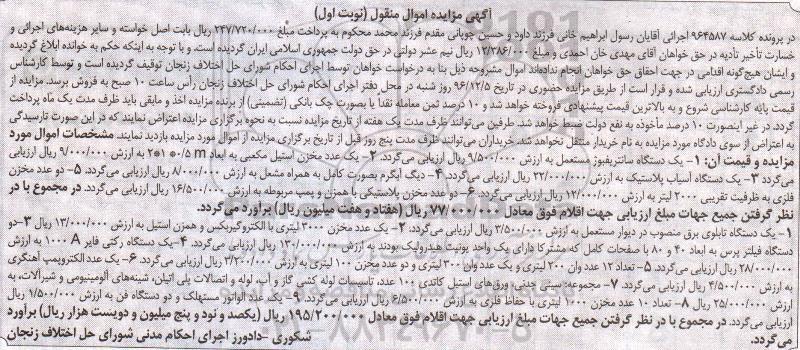 آگهی مزایده اموال منقول (نوبت اول)
در پرونده کلاسه ۹۶۴۵۸۷ اجرائی آقایان رسول ابراهیم خانی فرزند داود و حسین چوپانی مقدم فرزند محمد محکوم به پرداخت مبلغ ۲۴۷/۷۲۰/۰۰۰ ریال بابت اصل خواسته و سایر هزینه‌های اجرائی و
خسارت تأخیر تأدیه در حق خواهان آقای مهدی خان احمدی و مبلغ ۱۲/۳۸۶/۰۰۰ ریال نیم عشر دولتی در حق دولت جمهوری اسلامی ایران گردیده است، و با توجه به اینکه حکم به خوانده ابلاغ گردیده
و ایشان هیچ‌گونه اقدامی در جهت احقاق حق خواهان انجام نداده‌اند اموال مشروحه ذیل بنا به درخواست خواهان توسط اجرای احکام شورای حل اختلاف زنجان توقیف گردیده است و توسط کارشناس
رسمی دادگستری ارزیابی شده و قرار است از طریق مزایده حضوری در تاریخ ۹۶/۱۲/۵ روز شنبه در محل دفتر اجرای احکام شورای حل اختلاف زنجان رأس ساعت ۱۰ صبح به فروش برسد. مزایده از
قیمت پایه کارشناسی شروع و به بالاترین قیمت پیشنهادی فروخته خواهد شد و ۱۰ درصد ثمن معامله نقدا یا بصورت چک بانکی (تضمینی) از برنده مزایده اخذ و مابقی باید ظرف مدت یک ماه پرداخت
گردد. در غیر اینصورت ۱۰ درصد مأخوذه به نفع دولت ضبط خواهد شد. طرفین می‌توانند ظرف مدت یک هفته از تاریخ مزایده نسبت به نحوه برگزاری مزایده اعتراض نمایند که در این صورت تارسیدگی
به اعتراض از سوی دادگاه مورد مزایده به نام خریدار منتقل نخواهد شد. خریداران می‌توانند ظرف مدت پنج روز قبل از تاریخ برگزاری مزایده از اموال مورد مزایده بازدید نمایند. مشخصات اموال مورد
مزایده و قیمت آن: ۱- یک دستگاه سانتریفیوژ مستعمل به ارزش ۹/۵۰۰/۰۰۰ ریال ارزیابی می‌گردد. ۲- یک عدد مخزن استیل مکعبی به ابعاد ۲*۱*۰/۵ m به ارزش ۹/۰۰۰/۰۰۰ ریال ارزیابی
می‌گردد ۳- یک دستگاه آسیاب پلاستیک به ارزش ۲۲/۰۰۰/۰۰۰ ریال ارزیابی می‌گردد. ۴- دیگ آبگرم بصورت کامل به همراه مشعل به ارزش ۸/۰۰۰/۰۰۰ ریال ارزیابی می‌گردد. ۵- دو عدد مخزن
فلزی به ظرفیت تقریبی ۲۰۰۰ لیتر به ارزش ۱۲/۰۰۰/۰۰۰ ریال ارزیابی می‌گردد. ۶- دو عدد مخزن پلاستیکی با همزن و پمپ مربوطه به ارزش ۱۶/۵۰۰/۰۰۰ ریال ارزیابی می‌گردد. در مجموع با در
نظر گرفتن جمیع جهات مبلغ ارزیابی جهت اقلام فوق معادل ۷۷/۰۰۰/۰۰۰ ریال (هفتاد و هفت میلیون ریال) برآورد می‌گردد.
۱- یک دستگاه تابلوی برق منصوب در دیوار مستعمل به ارزش ۳/۵۰۰/۰۰۰ ریال ارزیابی می‌گردد. ۲- یک عدد مخزن ۳۰۰۰ لیتری با الکتروگیربکس و همزن استیل به ارزش ۱۳/۰۰۰/۰۰۰ ریال ۳-دو
دستگاه فیلتر پرس به ابعاد ۴۰ و ۸۰ با صفحات کامل که مشترکا دارای یک واحد یونیت هیدرولیک بودند به ارزش ۱۳۰/۰۰۰/۰۰۰ ریال ارزیابی می‌گردد. ۴-یک دستگاه رکتی فایر ۱۰۰۰ A به ارزش
۲۸/۰۰۰/۰۰۰ ریال ارزیابی می‌گردد. ۵- تعداد ۱۲ عدد وان ۲۰۰ لیتری و یک عدد وان ۳۰۰ لیتری و دو عدد مخزن ۱۰۰ لیتری به ارزش ۳/۲۰۰/۰۰۰ ریال ارزیابی می‌گردد. ۶- یک عدد الکتروپمپ آهنگری
به ارزش ۴/۵۰۰/۰۰۰ ریال ارزیابی می‌گردد. ۷- مجموعه سینی چدنی ورق‌های استیل کاتدی ۱۰۰ عدد، تاسیسات لوله کشی گاز و آب، لوله و اتصالات پلی اتیلن، شینه‌های آلومینیومی و شیرآلات، به
ارزش ۲۵/۰۰۰/۰۰۰ ریال ۸- تعداد ۱۰ عدد مخزن ۱۰۰۰ لیتری با حفاظ فلزی به ارزش ۶/۵۰۰/۰۰۰ ریال ارزیابی می‌گردد. ۹- یک عدد الواتور مستهلک و دو دستگاه فن به ارزش ۱/۵۰۰/۰۰۰ ریال
ارزیابی می‌گردد. در مجموع با در نظر گرفتن جمیع جهات مبلغ ارزیابی جهت اقلام فوق معادل ۱۹۵/۲۰۰/۰۰۰ ریال (یکصد و نود و پنج میلیون و دویست هزار ریال) برآورد
می‌گردد. شکوری -دادورز اجرای احکام مدنی شورای حل اختلاف زنجان